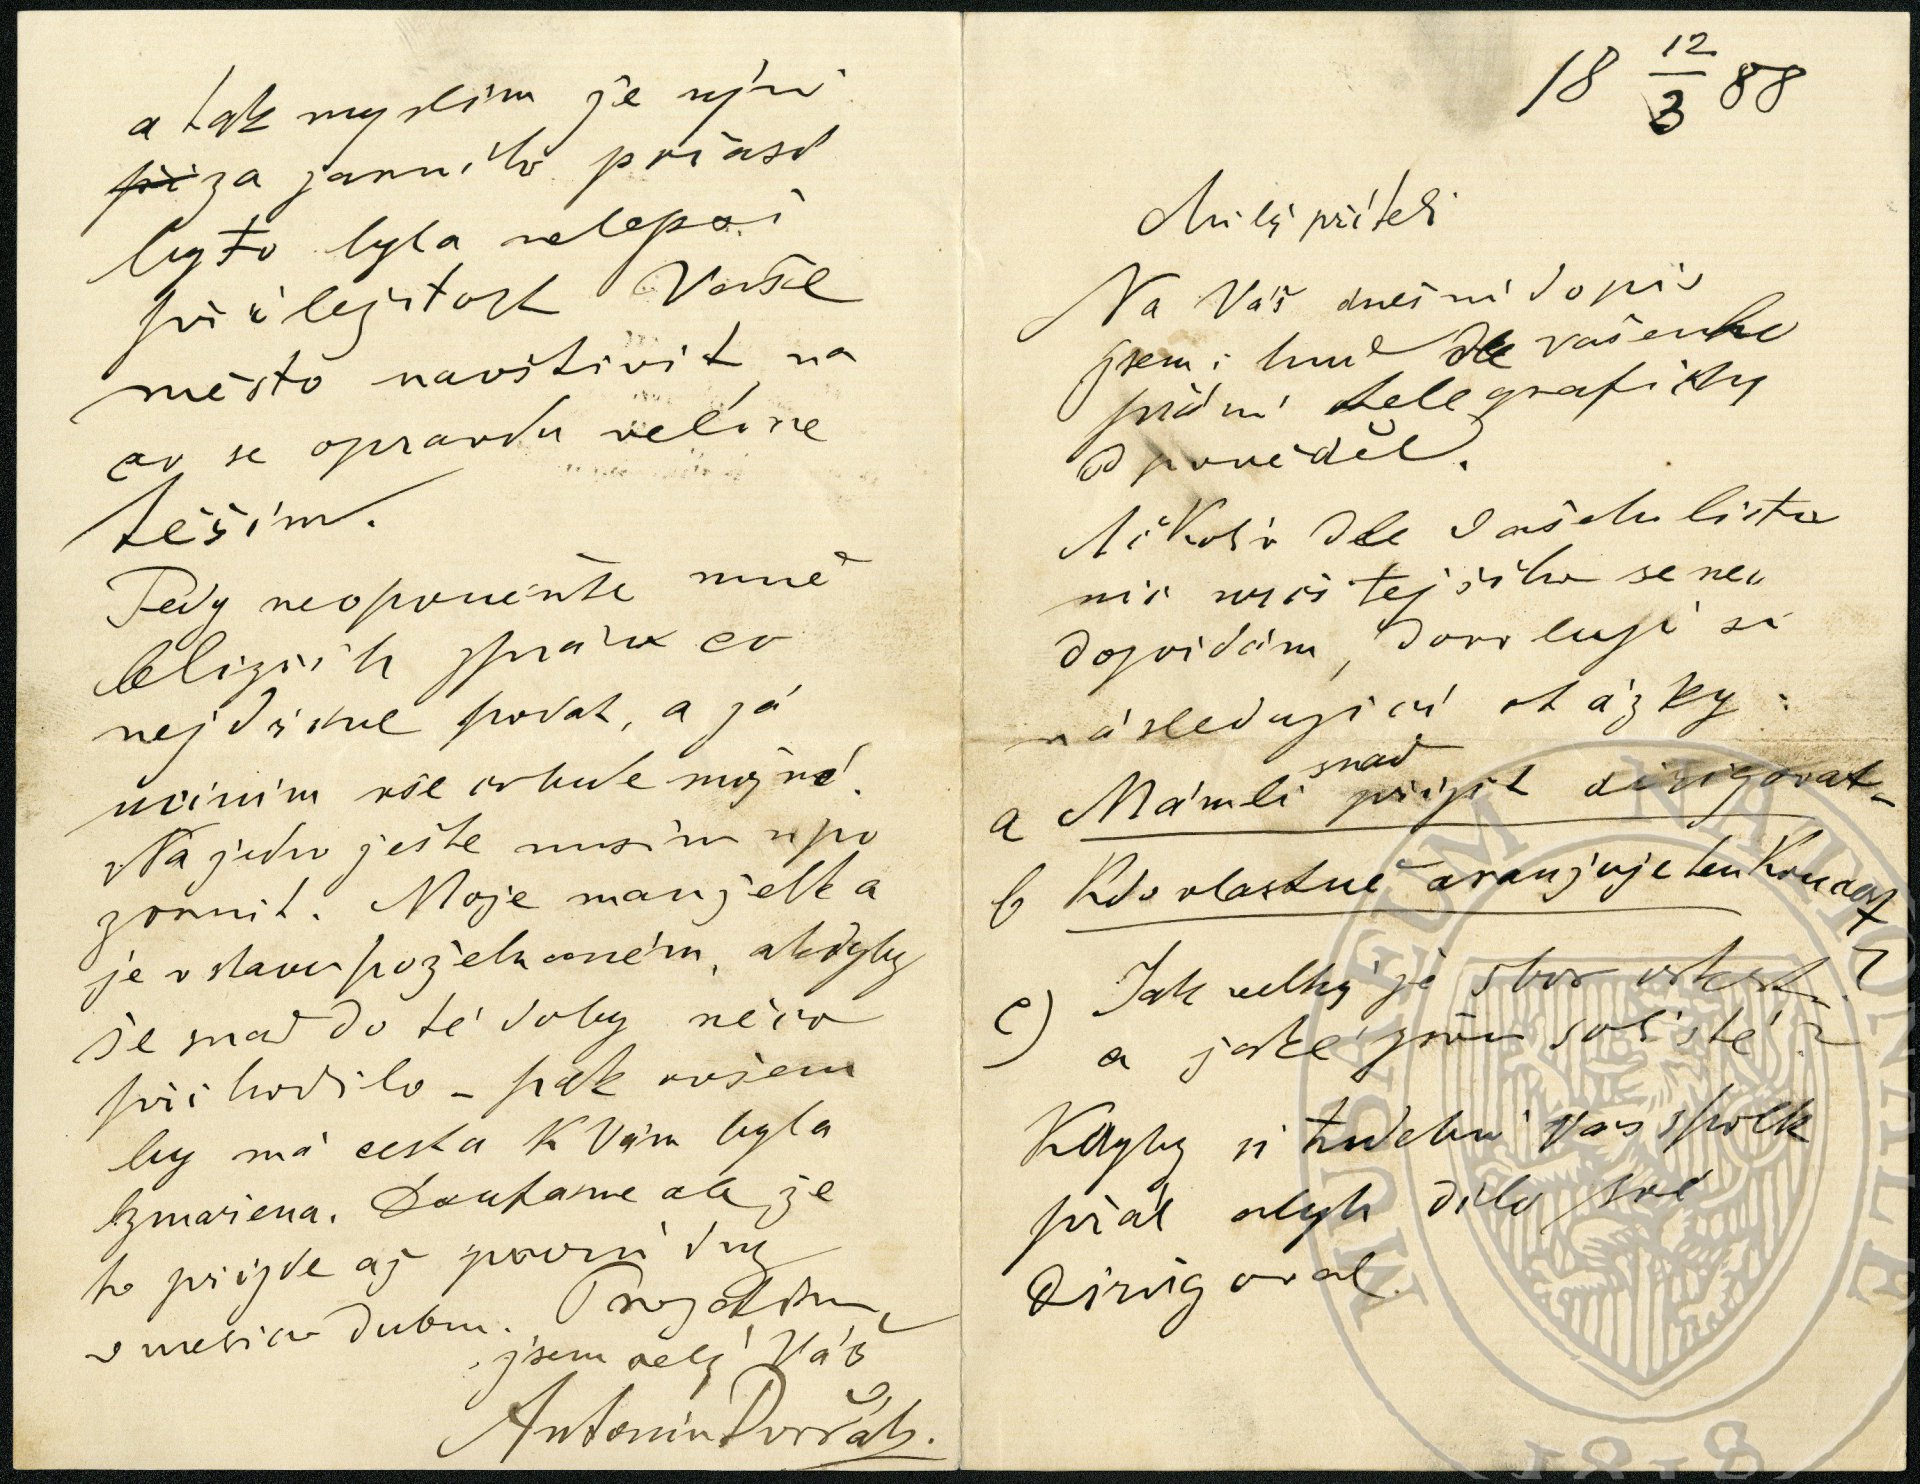 18 12/3 88
Milý příteli
Na Váš dnešní dopis
jsem i hned dle vašeho
přání telegraficky
odpověděl.
Ačkoliv dle Vašeho listu
nic určitejšího se ne
dopídám, dovoluji si
následující otázky:
snad
a Mámli přijít dirigovat
b Kdo vlastně aranjuje ten Koncert?
c) Jak velký je sbor orkestr
a jaké jsou solisté?
Kdyby si tudehni Vás spolk
přál abych dílo své
dirigoval.
a tak myslím že nyní
za jarního počasí
by to byla nelepší
příležitost Vaše
město navštívit, na
co se opravdu velice
těším.
Tedy neopomeňte mně
bližších zpráv co
nejdříve podat, a já
učiním vše co bude možné.
Na jedno ješte musím upo
zornit. Moje manželka
je v stavu požehnaném, a kdyby
se snad do té doby něco
přihodilo – pak ovšem
by má cesta K Vám byla
zmařena. Doufáme ale že
to přijde až první dny
v mesíce dubnu. Prozatím
jsem celý Váš
Antonín Dvořák.
MUSAEUM NATIONALE
1818